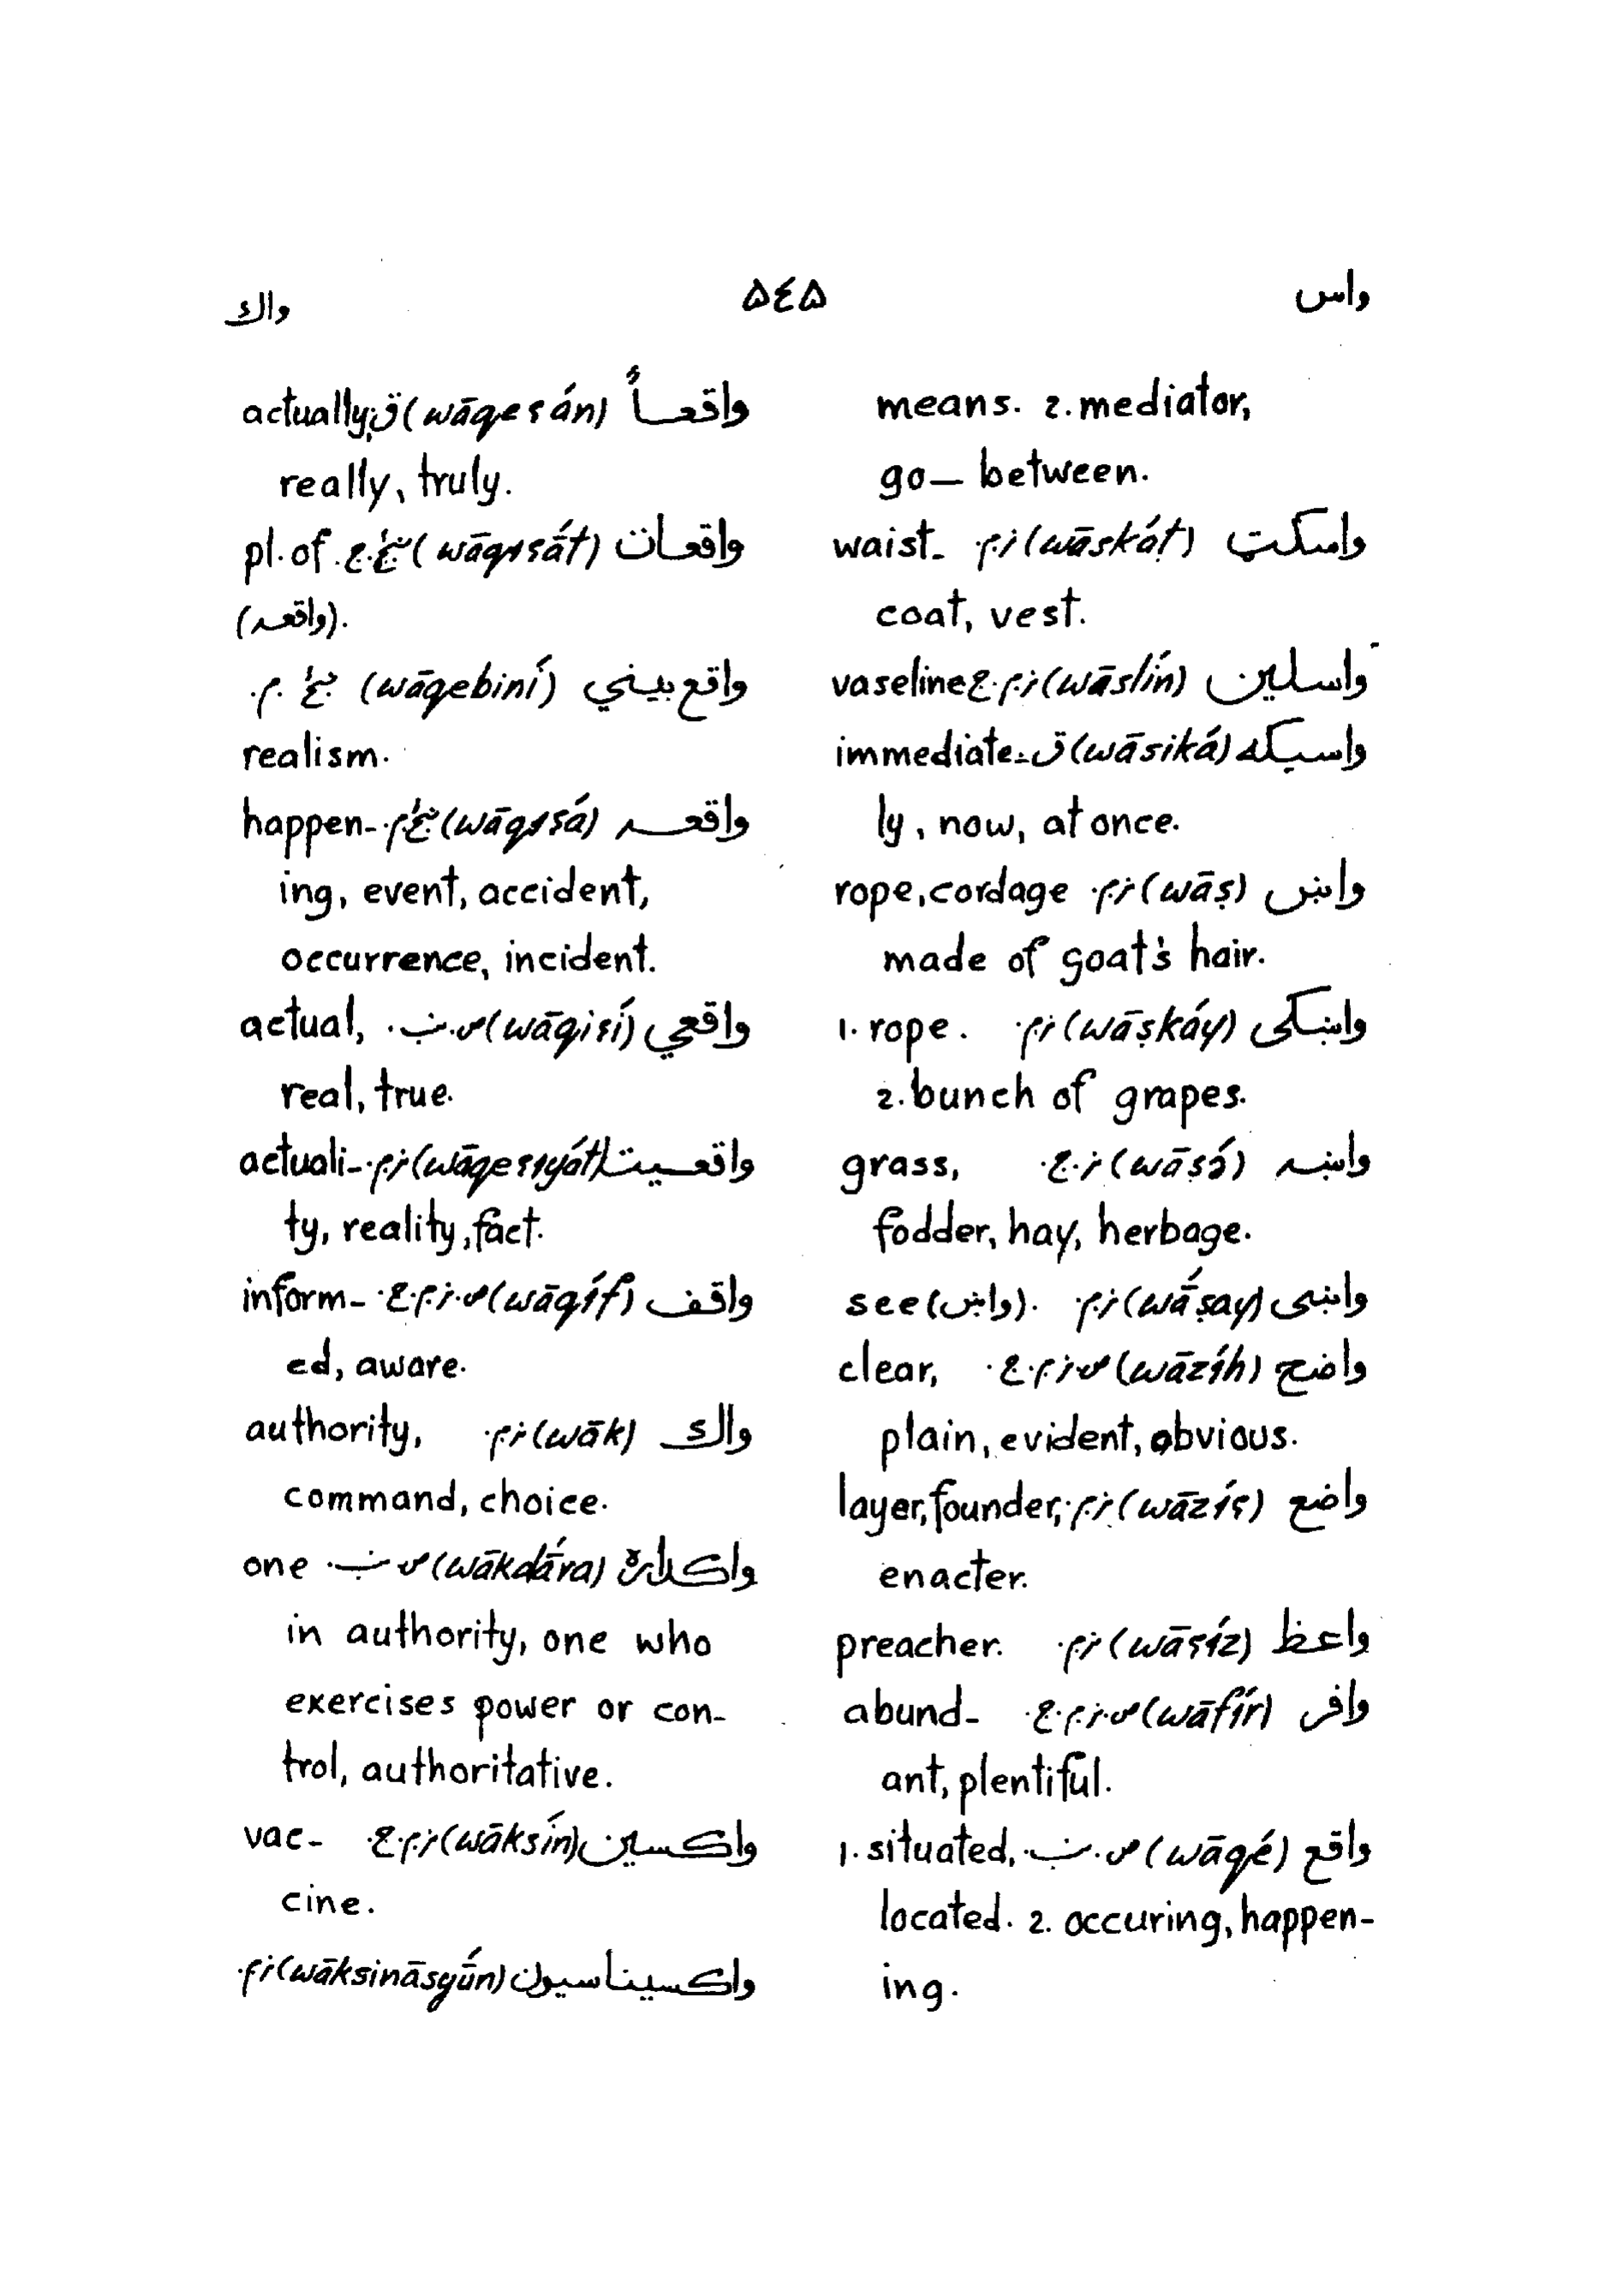 واس ۵٤۵ واك
means. 2. mediator,
go — between.
واسکټ (wāskáṭ) نر.م. waist-
coat, vest.
واسلین (wāslín) نر.م.ج. vaseline
واسیکه (wāsiká) ق. immediate-
ly, now, at once.
واښ (wāṣ) نر.م. rope, cordage
made of goat's hair.
واښکی (wāṣkáy) نر.م. 1. rope.
2. bunch of grapes.
واښه (wāṣə́) نر.ج. grass,
fodder, hay, herbage.
واښی (wā́ṣay) نر.م. see (واښ).
واضح (wāzíh) ص.نر.م.ج. clear,
plain, evident, obvious.
واضع (wāzíʕ) نر.م. layer, founder,
enacter.
واعظ (wāʕíz) نر.م. preacher.
وافر (wāfír) ص.نر.م.ج. abund-
ant, plentiful.
واقع (wāqé) ص.ب. 1. situated,
located. 2. occuring, happen-
ing.
واقعاً (wāqeʕán) ق. actually,
really, truly.
واقعات (wāqıʕát) ښځ.ج. pl. of
(واقعه).
واقع بیني (wāqebiní) ښځ.م.
realism.
واقعه (wāqıʕá) ښځ.م. happen-
ing, event, accident,
occurrence, incident.
واقعي (wāqiʕí) ص.ب. actual,
real, true.
واقعیت (wāqeʕıyát) نر.م. actuali-
ty, reality, fact.
واقف (wāqíf) ص.نر.م.ج. inform-
ed, aware.
واك (wāk) نر.م. authority,
command, choice.
واکداره (wākdā́ra) ص.ب. one
in authority, one who
exercises power or con-
trol, authoritative.
واکسین (wāksín) نر.م.ج. vac-
cine.
واکسیناسیون (wāksināsyū́n) نر.م.